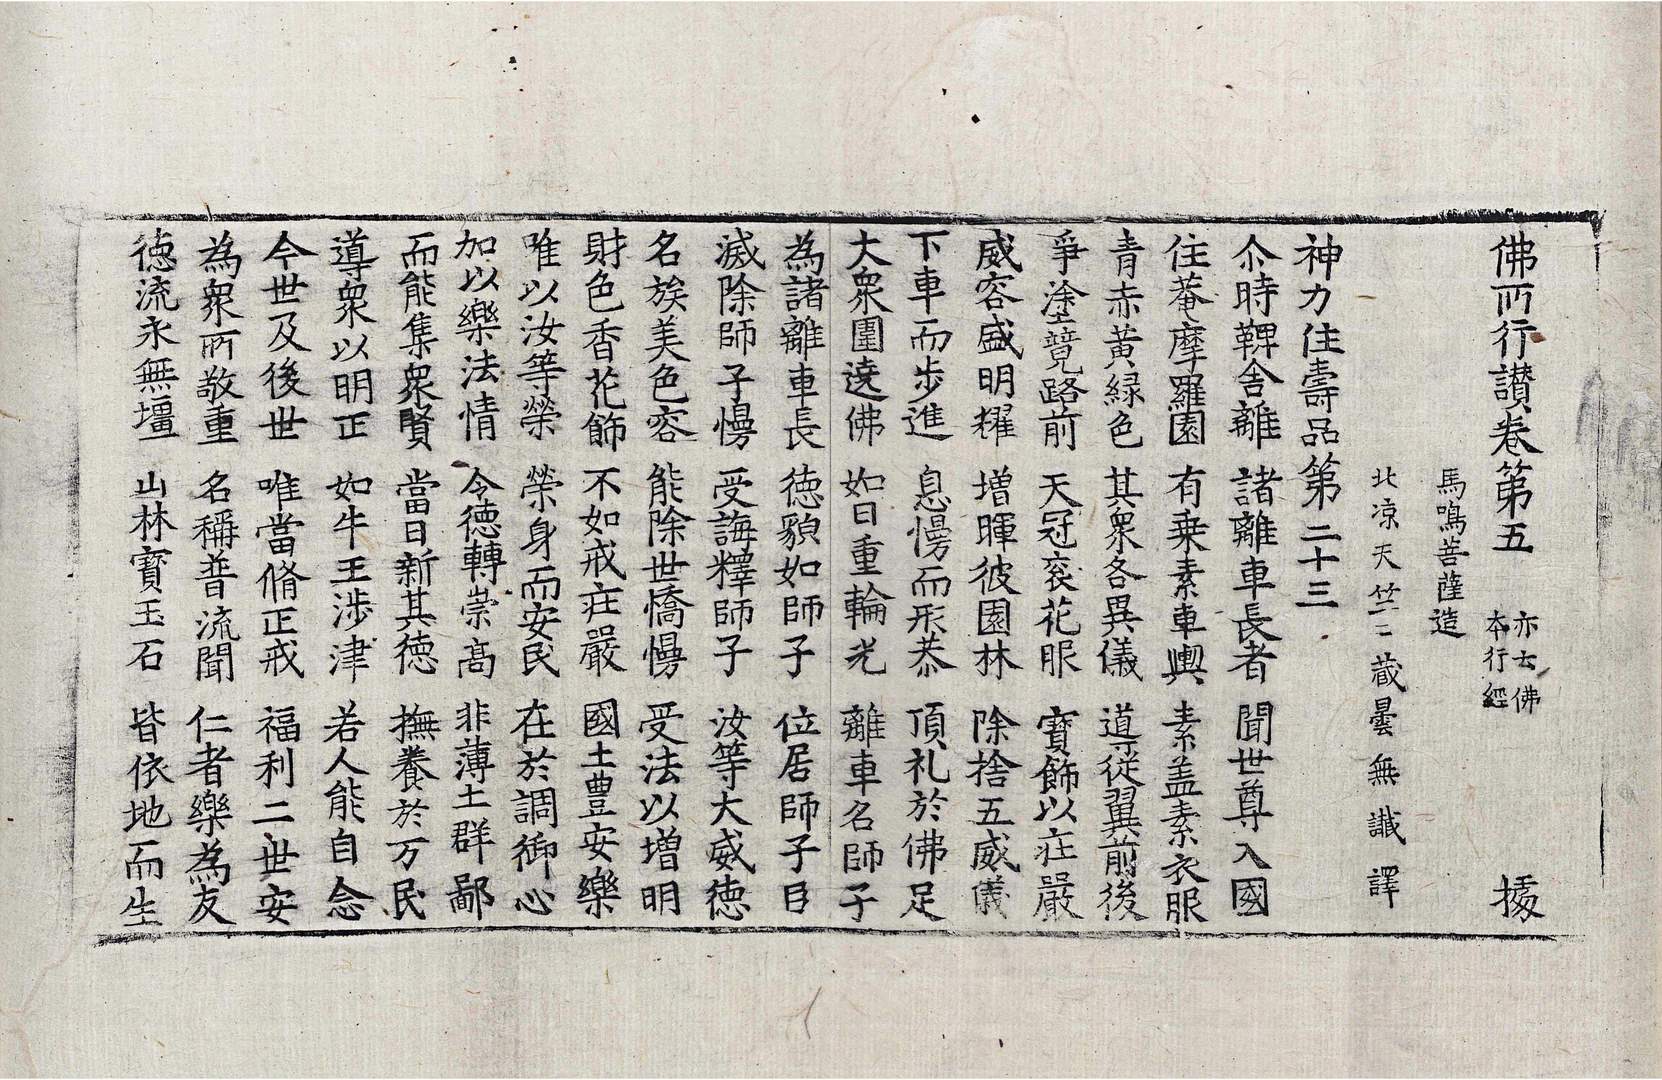 佛所行讃卷第五 亦云佛本行經 據
馬鳴菩薩造
北涼天竺三藏曇無讖譯
神力住壽品第二十三
尒時鞞舍離 諸離車長者 聞世尊入國
住菴摩羅園 有乗素車輿 素盖素衣服
青赤黃緑色 其衆各異儀 導從翼前後
爭塗競路前 天冠衮花服 寳飾以莊嚴
威容盛明耀 増暉彼園林 除捨五威儀
下車而步進 息慢而形恭 頂礼於佛足
大衆圍遶佛 如日重輪光 離車名師子
為諸離車長 徳貌如師子 位居師子臣
滅除師子慢 受誨釋師子 汝等大威徳
名族美色容 能除世憍慢 受法以増明
財色香花飾 不如戒莊嚴 國土豊安樂
唯以汝等榮 榮身而安民 在於調御心
加以樂法情 令徳轉崇髙 非薄土群鄙
而能集衆賢 當日新其徳 撫養於万民
導衆以明正 如牛王涉津 若人能自念
今世及後世 唯當脩正戒 福利二世安
為衆所敬重 名稱普流聞 仁者樂為友
徳流永無壃 山林寳玉石 皆依地而生